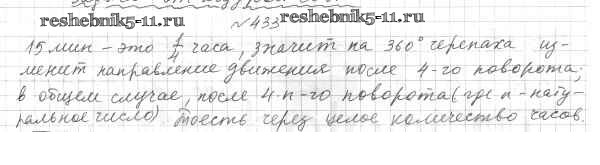 reshebnik5-11.ru
№433 reshebnik5-11.ru
15 мин - это 1/4 часа, значит на 360° черепаха из-
менит направление движения после 4-го поворота;
в общем случае, после 4·n-го поворота (где n - нату-
ральное число) тоесть через целое количество часов.